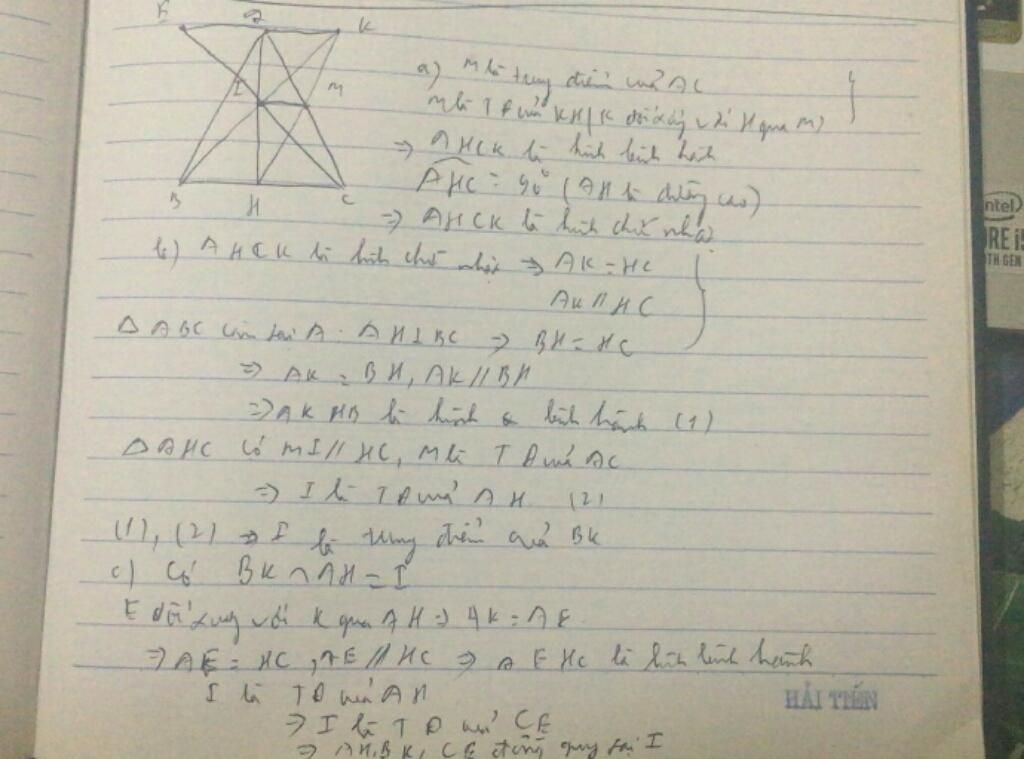 E A K
I M
B H C
a) M là trung điểm của AC
M là TĐ của KH (K đối xứng với H qua M)
=> AHCK là hình bình hành
AHC = 90° (AH là đường cao)
=> AHCK là hình chữ nhật
b) AHCK là hình chữ nhật => AK = HC
AK // HC
△ ABC cân tại A. AH ⊥ BC => BH = HC
=> AK = BH, AK // BH
=> AKHB là hình bình hành (1)
△ AHC có MI // HC, M là TĐ của AC
=> I là TĐ của AH (2)
(1), (2) => I là trung điểm của BK
c) Có BK ∩ AH = I
E đối xứng với K qua AH => AK = AE
=> AE = HC, AE // HC => AEHC là hình bình hành
I là TĐ của AH
HẢI TIẾN
=> I là TĐ của CE
=> AH, BK, CE đồng quy tại I
intel
CORE i5
TH GEN